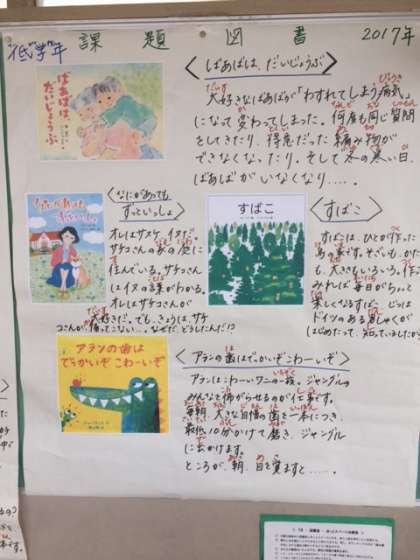 低学年 課題図書 2017年
ばあばは、だいじょうぶ
<ばあばは、だいじょうぶ>
大好きなばあばが「わすれてしまう病気」
になって変わってしまった。何度も同じ質問
をしてきたり、得意だった編み物が
できなくなったり。そして冬の寒い日、
ばあばがいなくなり……。
なにがあっても
ずっといっしょ
<なにがあっても
ずっといっしょ>
オレはサスケ。イヌだ。
サチコさんの家の庭に
住んでいる。サチコさん
はイヌの言葉がわかる。
オレはサチコさんが
大好きだ。でも、きょうは、サチ
コさんが、帰ってこない…。なぜだ、どうしたんだ!?
すばこ
<すばこ>
すばこは、ひとが作った
鳥の家です。そざいも、かたち
も、大きさもいろいろ。作って
みれば毎日がちょっと
楽しくなるすばこ、じつは
ドイツのある男しゃくが
はじめたって、知っていましたか
アランの歯は
でっかいぞ こわーいぞ
<アランの歯はでっかいぞこわーいぞ>
アランはこわーいワニの一族。ジャングルの
みんなを怖がらせるのが仕事です。
毎朝、大きな自慢の歯を一本につき、
最低10分かけて磨き、ジャングル
に出かけます。
ところが、朝、目を覚ますと……。